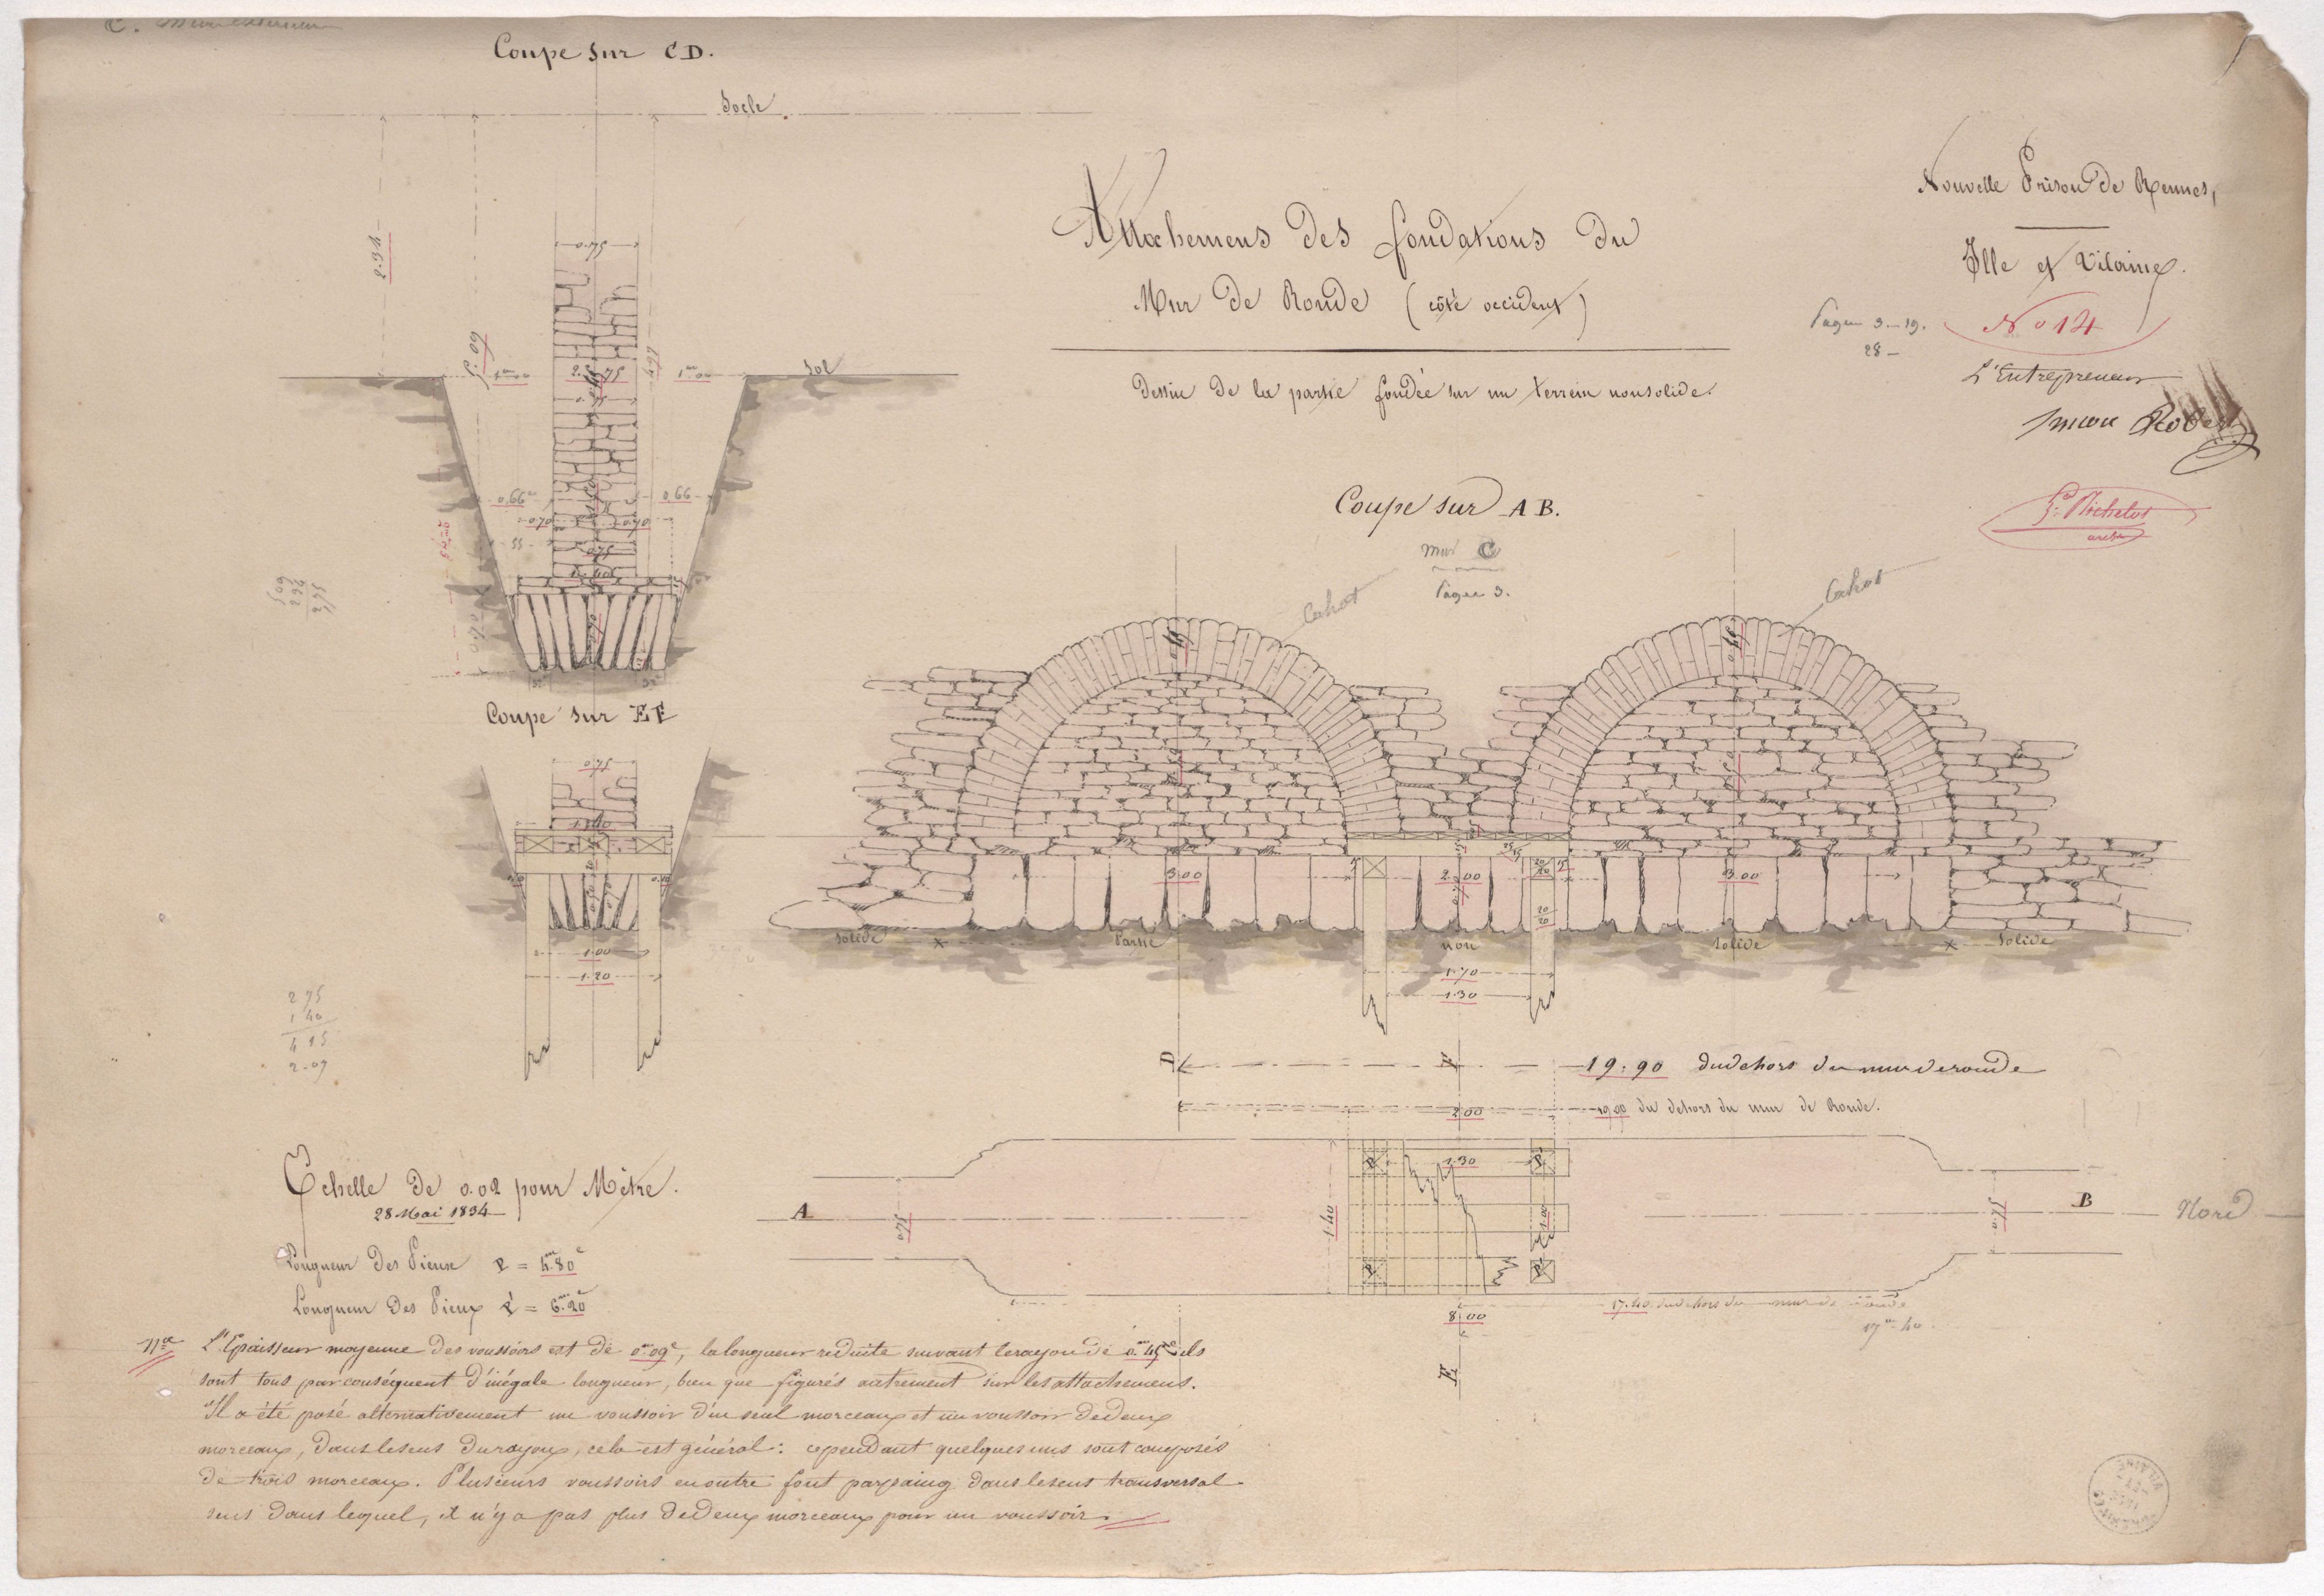 Coupe sur C D.
Socle.
Nouvelle Prison de Rennes,
Ille et Vilaine.
Pages 3-19.
28-
N° 14
L'Entrepreneur
Attachemens des fondations du
Mur de Ronde (côté occident)
Dessin de la partie fondée sur un terrein non solide.
Michelot
arch.
2.34
0.75
5.09
4.97
1m00
2.75
1m00
Sol
0.75
0.66
0.66
0.70
0.70
55
0.75
1.40
0.70
509
234
275
Coupe sur A B.
mur C
Pages 3.
Cahot
Cahot
Coupe sur E F
0.75
1.40
1.00
1.20
3.00
2.00
3.00
20
20
20
20
Solide
Partie
non
solide
Solide
1.70
1.30
2 75
1 40
4 15
2.09
A
F
19.90 du dehors du mur de ronde
2.00
19.90 du dehors du mur de Ronde.
Echelle de 0.02 pour Mètre.
28 Mai 1834
P
1.30
P'
A
0.75
1.40
1.00
0.75
B
Nord
P
P'
Longueur des Pieux P = 4.m80c
Longueur des Pieux P' = 6.m20c
8.00
17.40 du dehors du mur de ronde
17m 40
E
Nta L'Epaisseur moyenne des voussoirs est de 0m09c, la longueur reduite suivant le rayon de 0.m45c ils
sont tous par conséquent d'inégale longueur, bien que figurés autrement sur les attachemens.
Il a été posé alternativement un voussoir d'un seul morceaux et un voussoir de deux
morceaux, dans le sens du rayon, cela est général: cependant quelques uns sont composés
de trois morceaux. Plusieurs voussoirs en outre font parpaing dans le sens transversal
sens dans lequel, il n'y a pas plus de deux morceaux pour un voussoir.